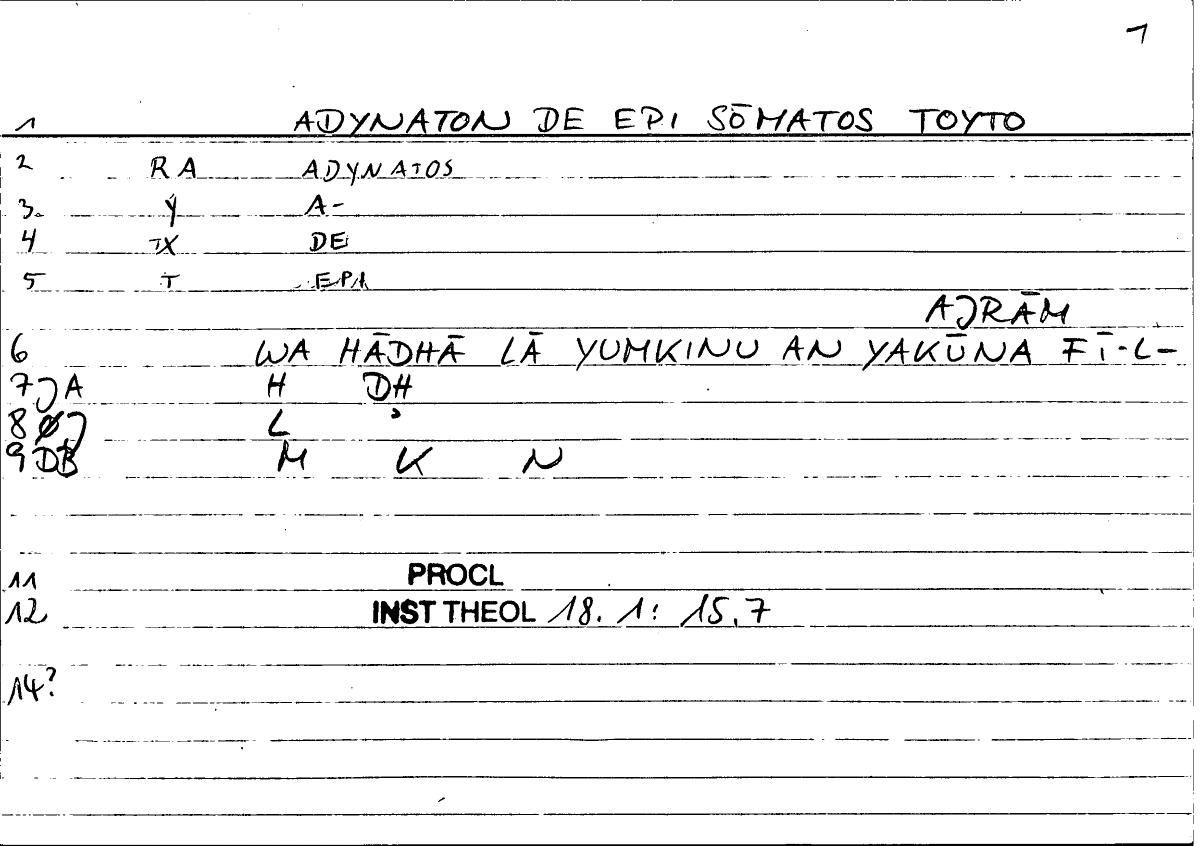 1
1 ADYNATON DE EPI SŌMATOS TOYTO
2 RA ADYNATOS
3. Y A-
4 TX DE
5 T EPI
AJRĀM
6 WA HĀDHĀ LĀ YUMKINU AN YAKŪNA FĪ-L-
7 JA H DH
8 ØJ L ʾ
9 DB M K N
11 PROCL
12 INST THEOL 18. 1: 15.7
14?